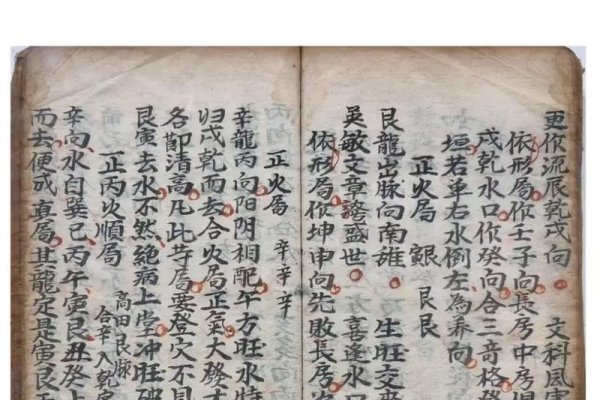 更作流辰乾戌向　文科風
依形局作壬子向長房中房
戌乾水口作癸向合三奇格
垣若单右水倒左為养向
正火局　艮艮
艮龍出脉向南雄　生旺交
英敏文章誇盛世　喜逢水
依形局作坤申向先敗長房
正火局　辛辛辛
辛龍丙向陽阴相配午方旺水特
归戌乾而去合火局正氣大發
各郎清高凡此寺局要登穴不
艮寅去水不然絶病上堂冲旺破
正丙火順局　高田艮脉
合辛入乾
辛向水自巽巳丙午寅艮丑癸上
而去便成真局其龍定是寅艮